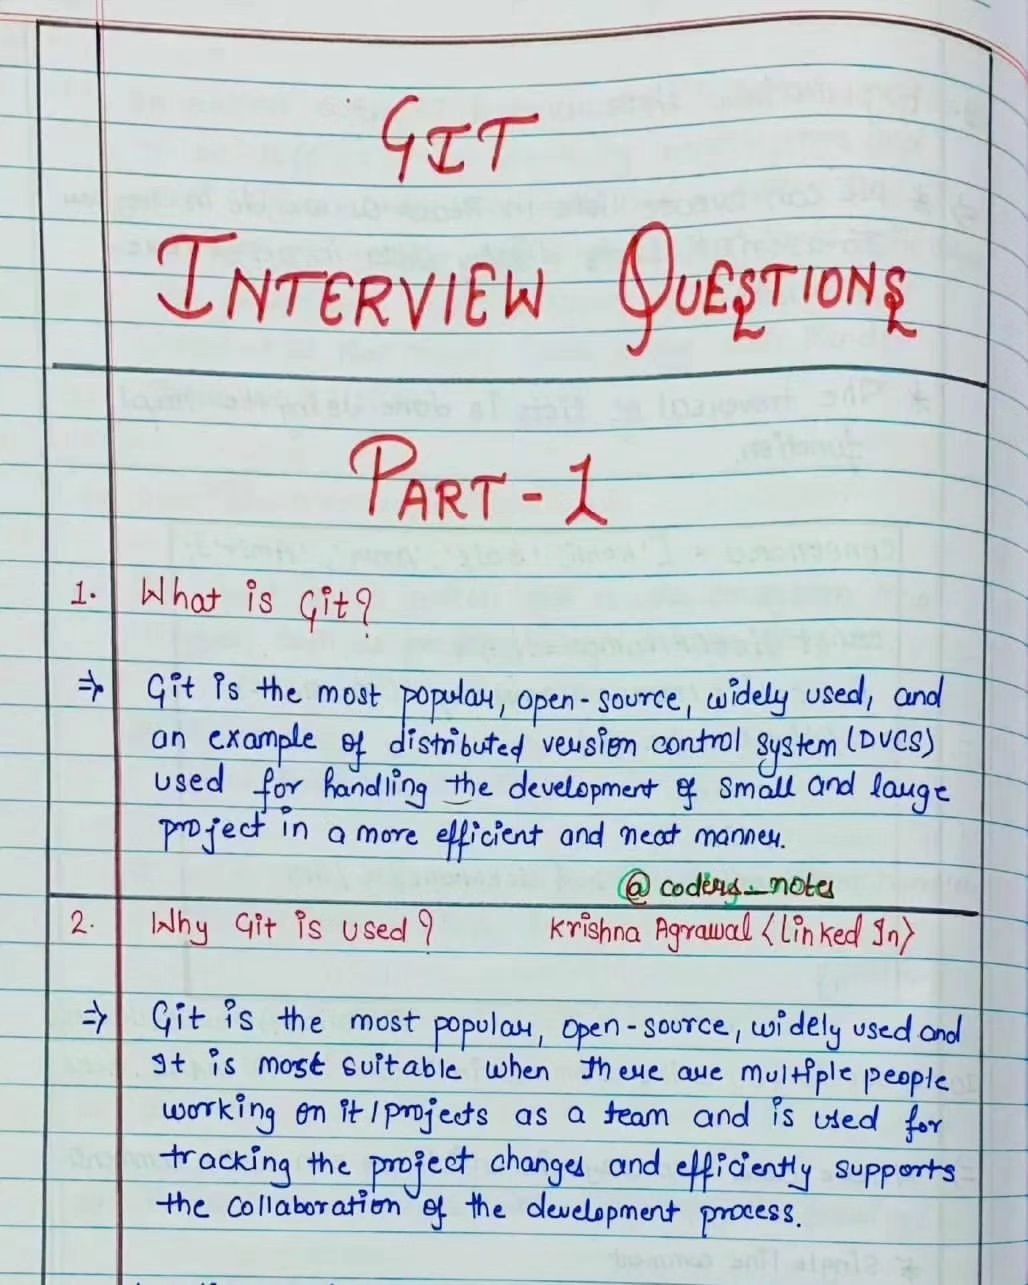 GIT
INTERVIEW QUESTIONS
PART-1
1. What is Git?
⇒ Git is the most popular, open-source, widely used, and
an example of distributed version control system (DVCS)
used for handling the development of small and large
project in a more efficient and neat manner.
@coders_notes
2. Why Git is used? Krishna Agrawal <Linked In>
⇒ Git is the most popular, open-source, widely used and
It is most suitable when there are multiple people
working on it/projects as a team and is used for
tracking the project changes and efficiently supports
the collaboration of the development process.